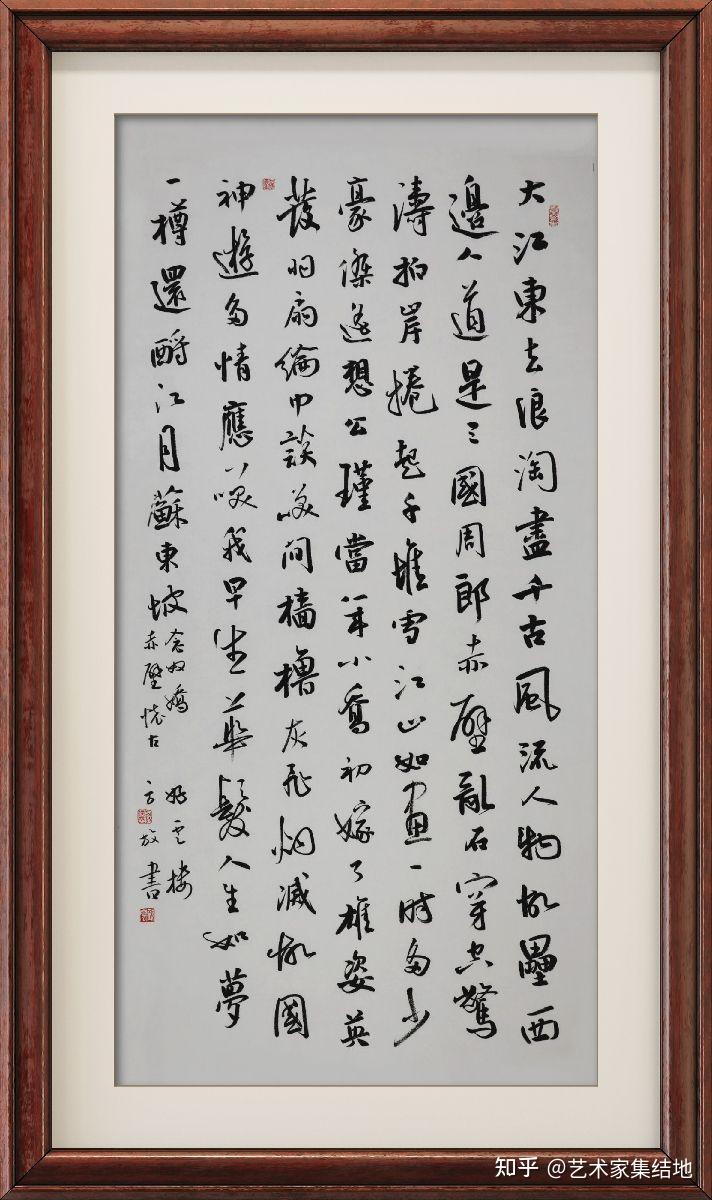 大江東去浪淘盡千古風流人物故壘西
邊人道是三國周郎赤壁亂石穿空驚
濤拍岸捲起千堆雪江山如畫一時多少
豪傑遙想公瑾當年小喬初嫁了雄姿英
發羽扇綸巾談笑間檣櫓灰飛烟滅故國
神遊多情應笑我早生華髮人生如夢
一樽還酹江月蘇東坡
念奴嬌
赤壁懷古
雲樓
書
知乎 @艺术家集结地